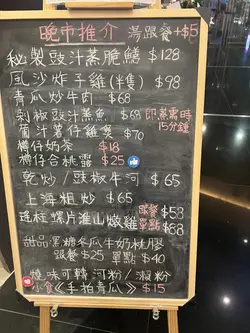 晚市推介 湯跟餐+$5
秘製豉汁蒸脆鱔 $128
風沙炸子雞(半隻) $98
青瓜炒牛肉 $68
剁椒豉汁蒸魚 $68 即蒸需時15分鐘
葡汁薯仔雞煲 $70
樽仔奶茶 $18
樽仔合桃露 $25
乾炒/豉椒牛河 $65
上海粗炒 $65
螺片淮山燉雞 跟餐$58 單點$88
甜品:黑糖冬瓜牛奶桂膠
跟餐$25 單點$40
燒味可轉河粉/瀨粉
小食《手拍青瓜》$15